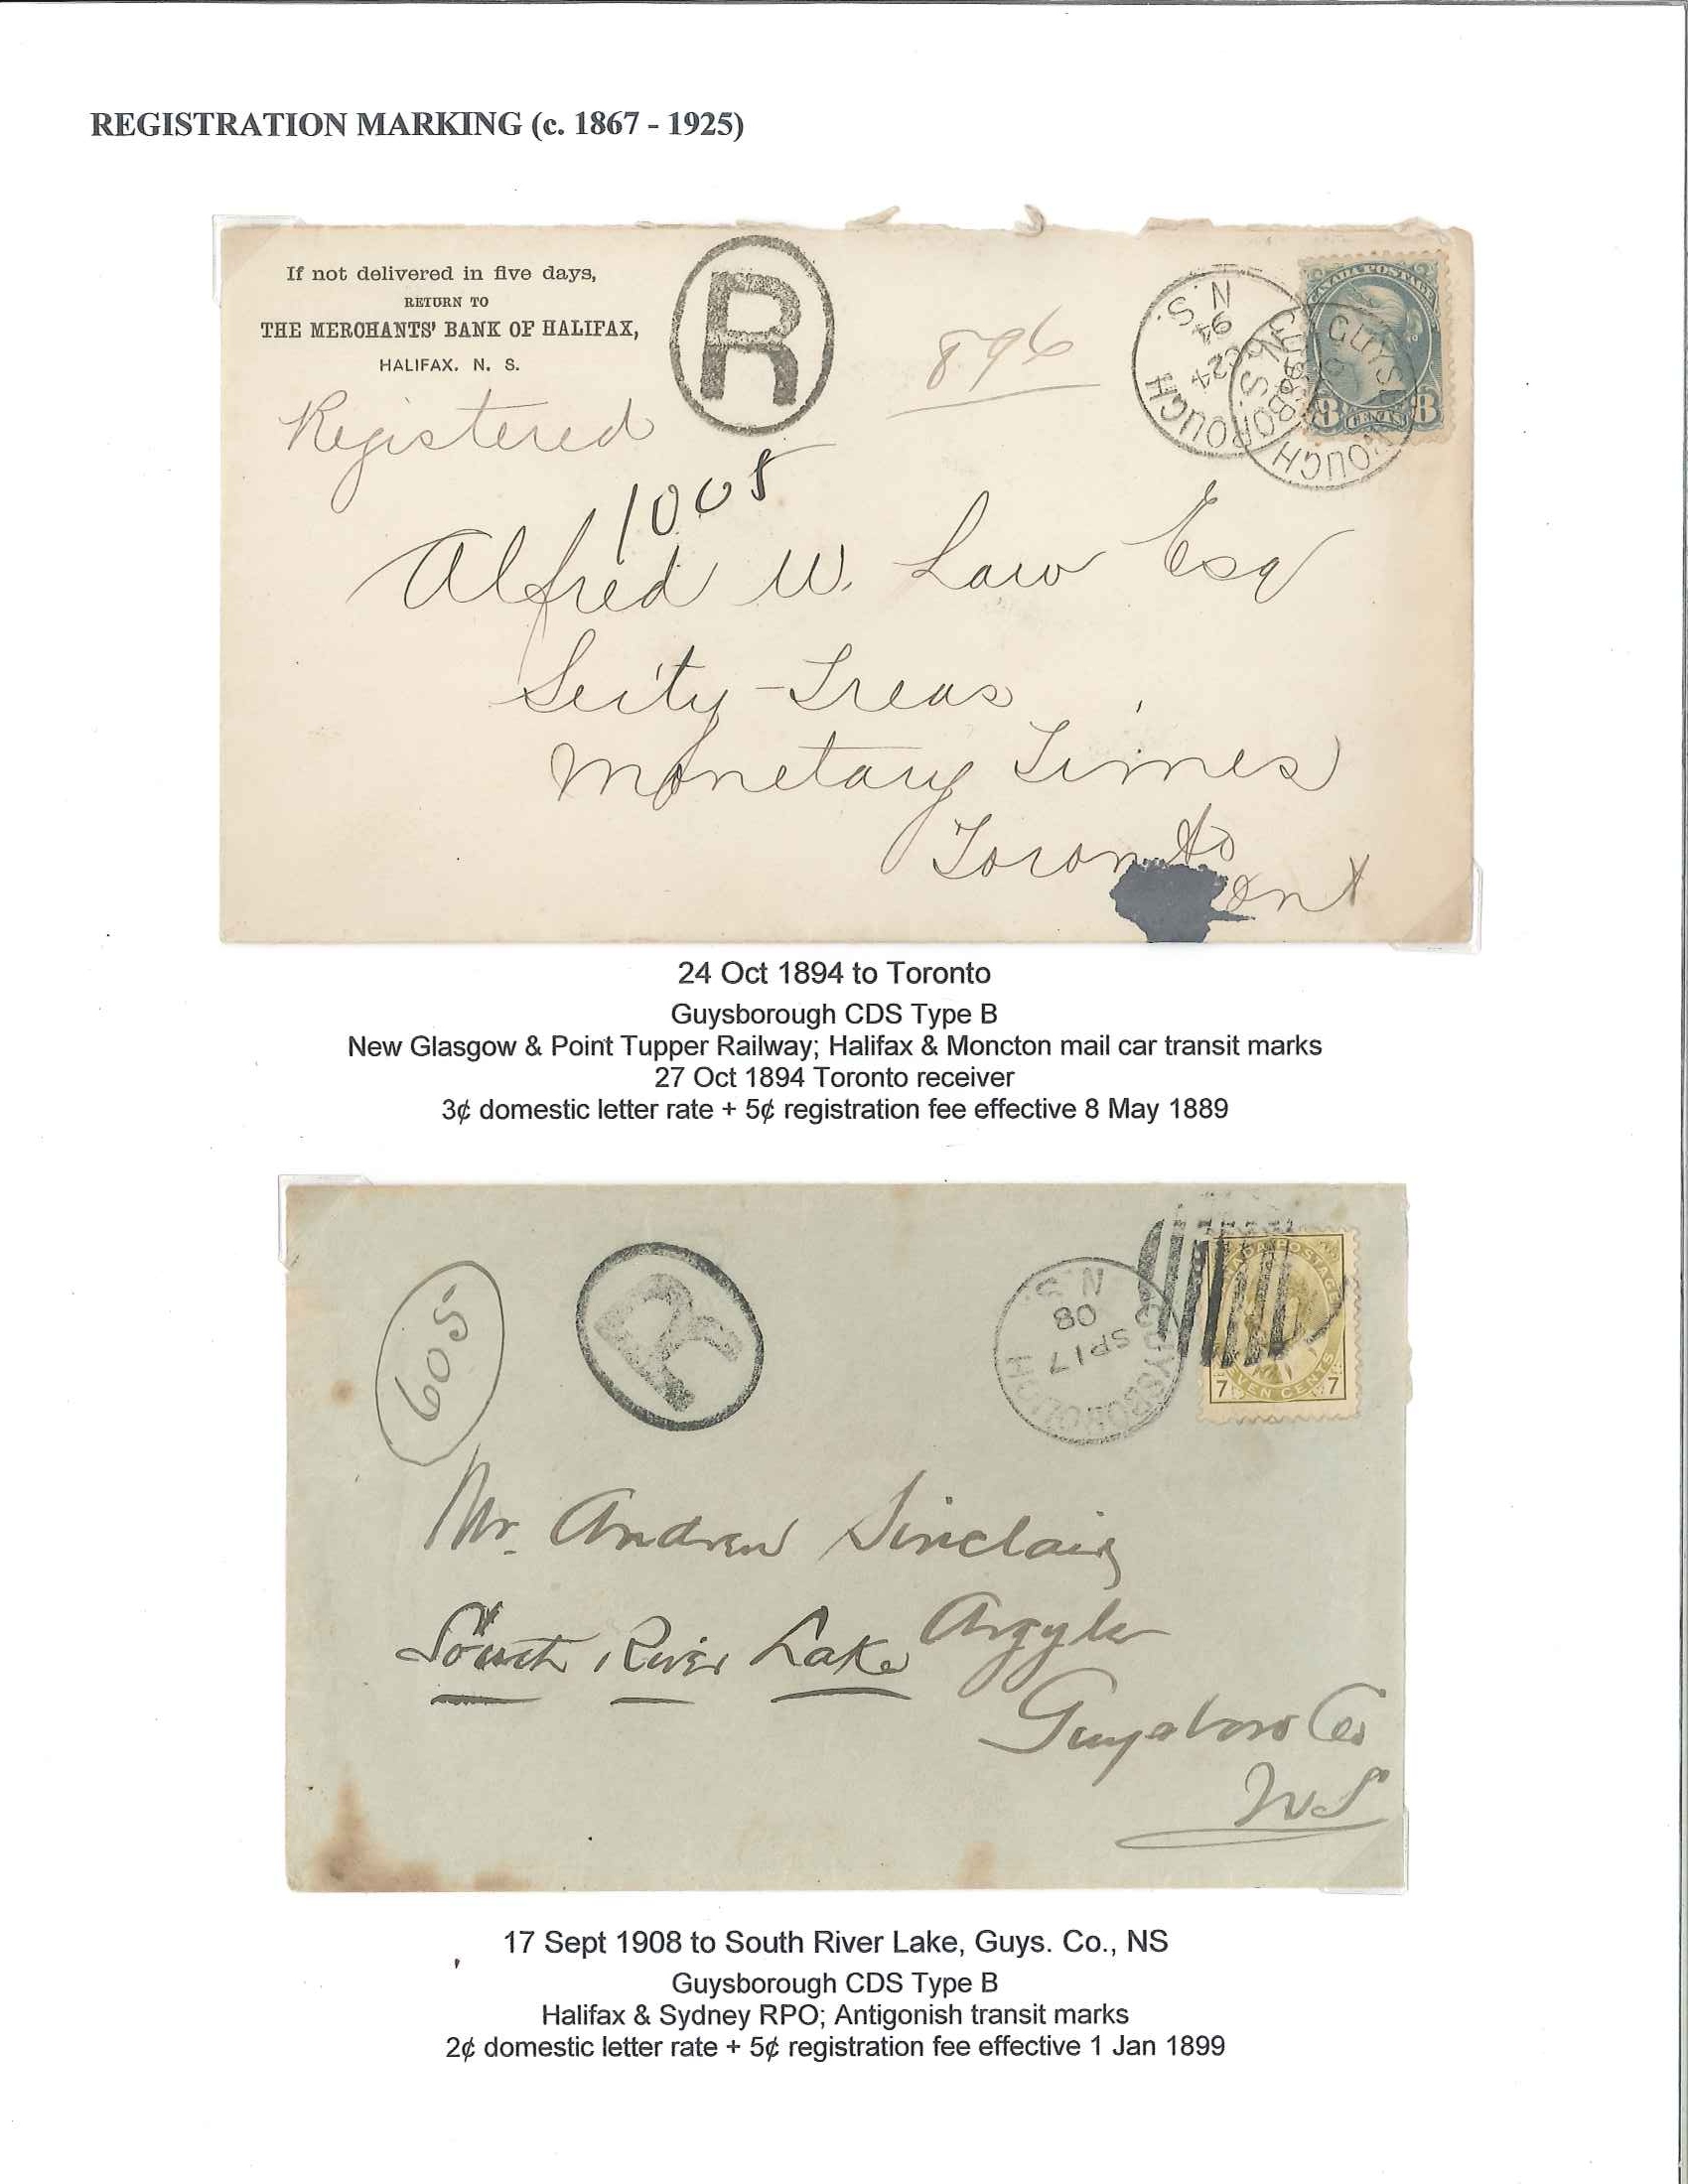 REGISTRATION MARKING (c. 1867 - 1925)
If not delivered in five days,
RETURN TO
THE MERCHANTS' BANK OF HALIFAX,
HALIFAX. N. S.
R
896
Registered
1005
GUYSBOROUGH
N.S.
24
94
GUYSBOROUGH
N.S.
CANADA POSTAGE
8 CENTS 8
Alfred W. Law Esq
Secty-Treas
Monetary Times
Toronto
Ont
24 Oct 1894 to Toronto
Guysborough CDS Type B
New Glasgow & Point Tupper Railway; Halifax & Moncton mail car transit marks
27 Oct 1894 Toronto receiver
3¢ domestic letter rate + 5¢ registration fee effective 8 May 1889
605
R
GUYSBOROUGH
SP 17
08
N.S.
CANADA POSTAGE
7 SEVEN CENTS 7
Mr. Andrew Sinclair
Argyle
South River Lake
Guysboro Co
NS
17 Sept 1908 to South River Lake, Guys. Co., NS
Guysborough CDS Type B
Halifax & Sydney RPO; Antigonish transit marks
2¢ domestic letter rate + 5¢ registration fee effective 1 Jan 1899